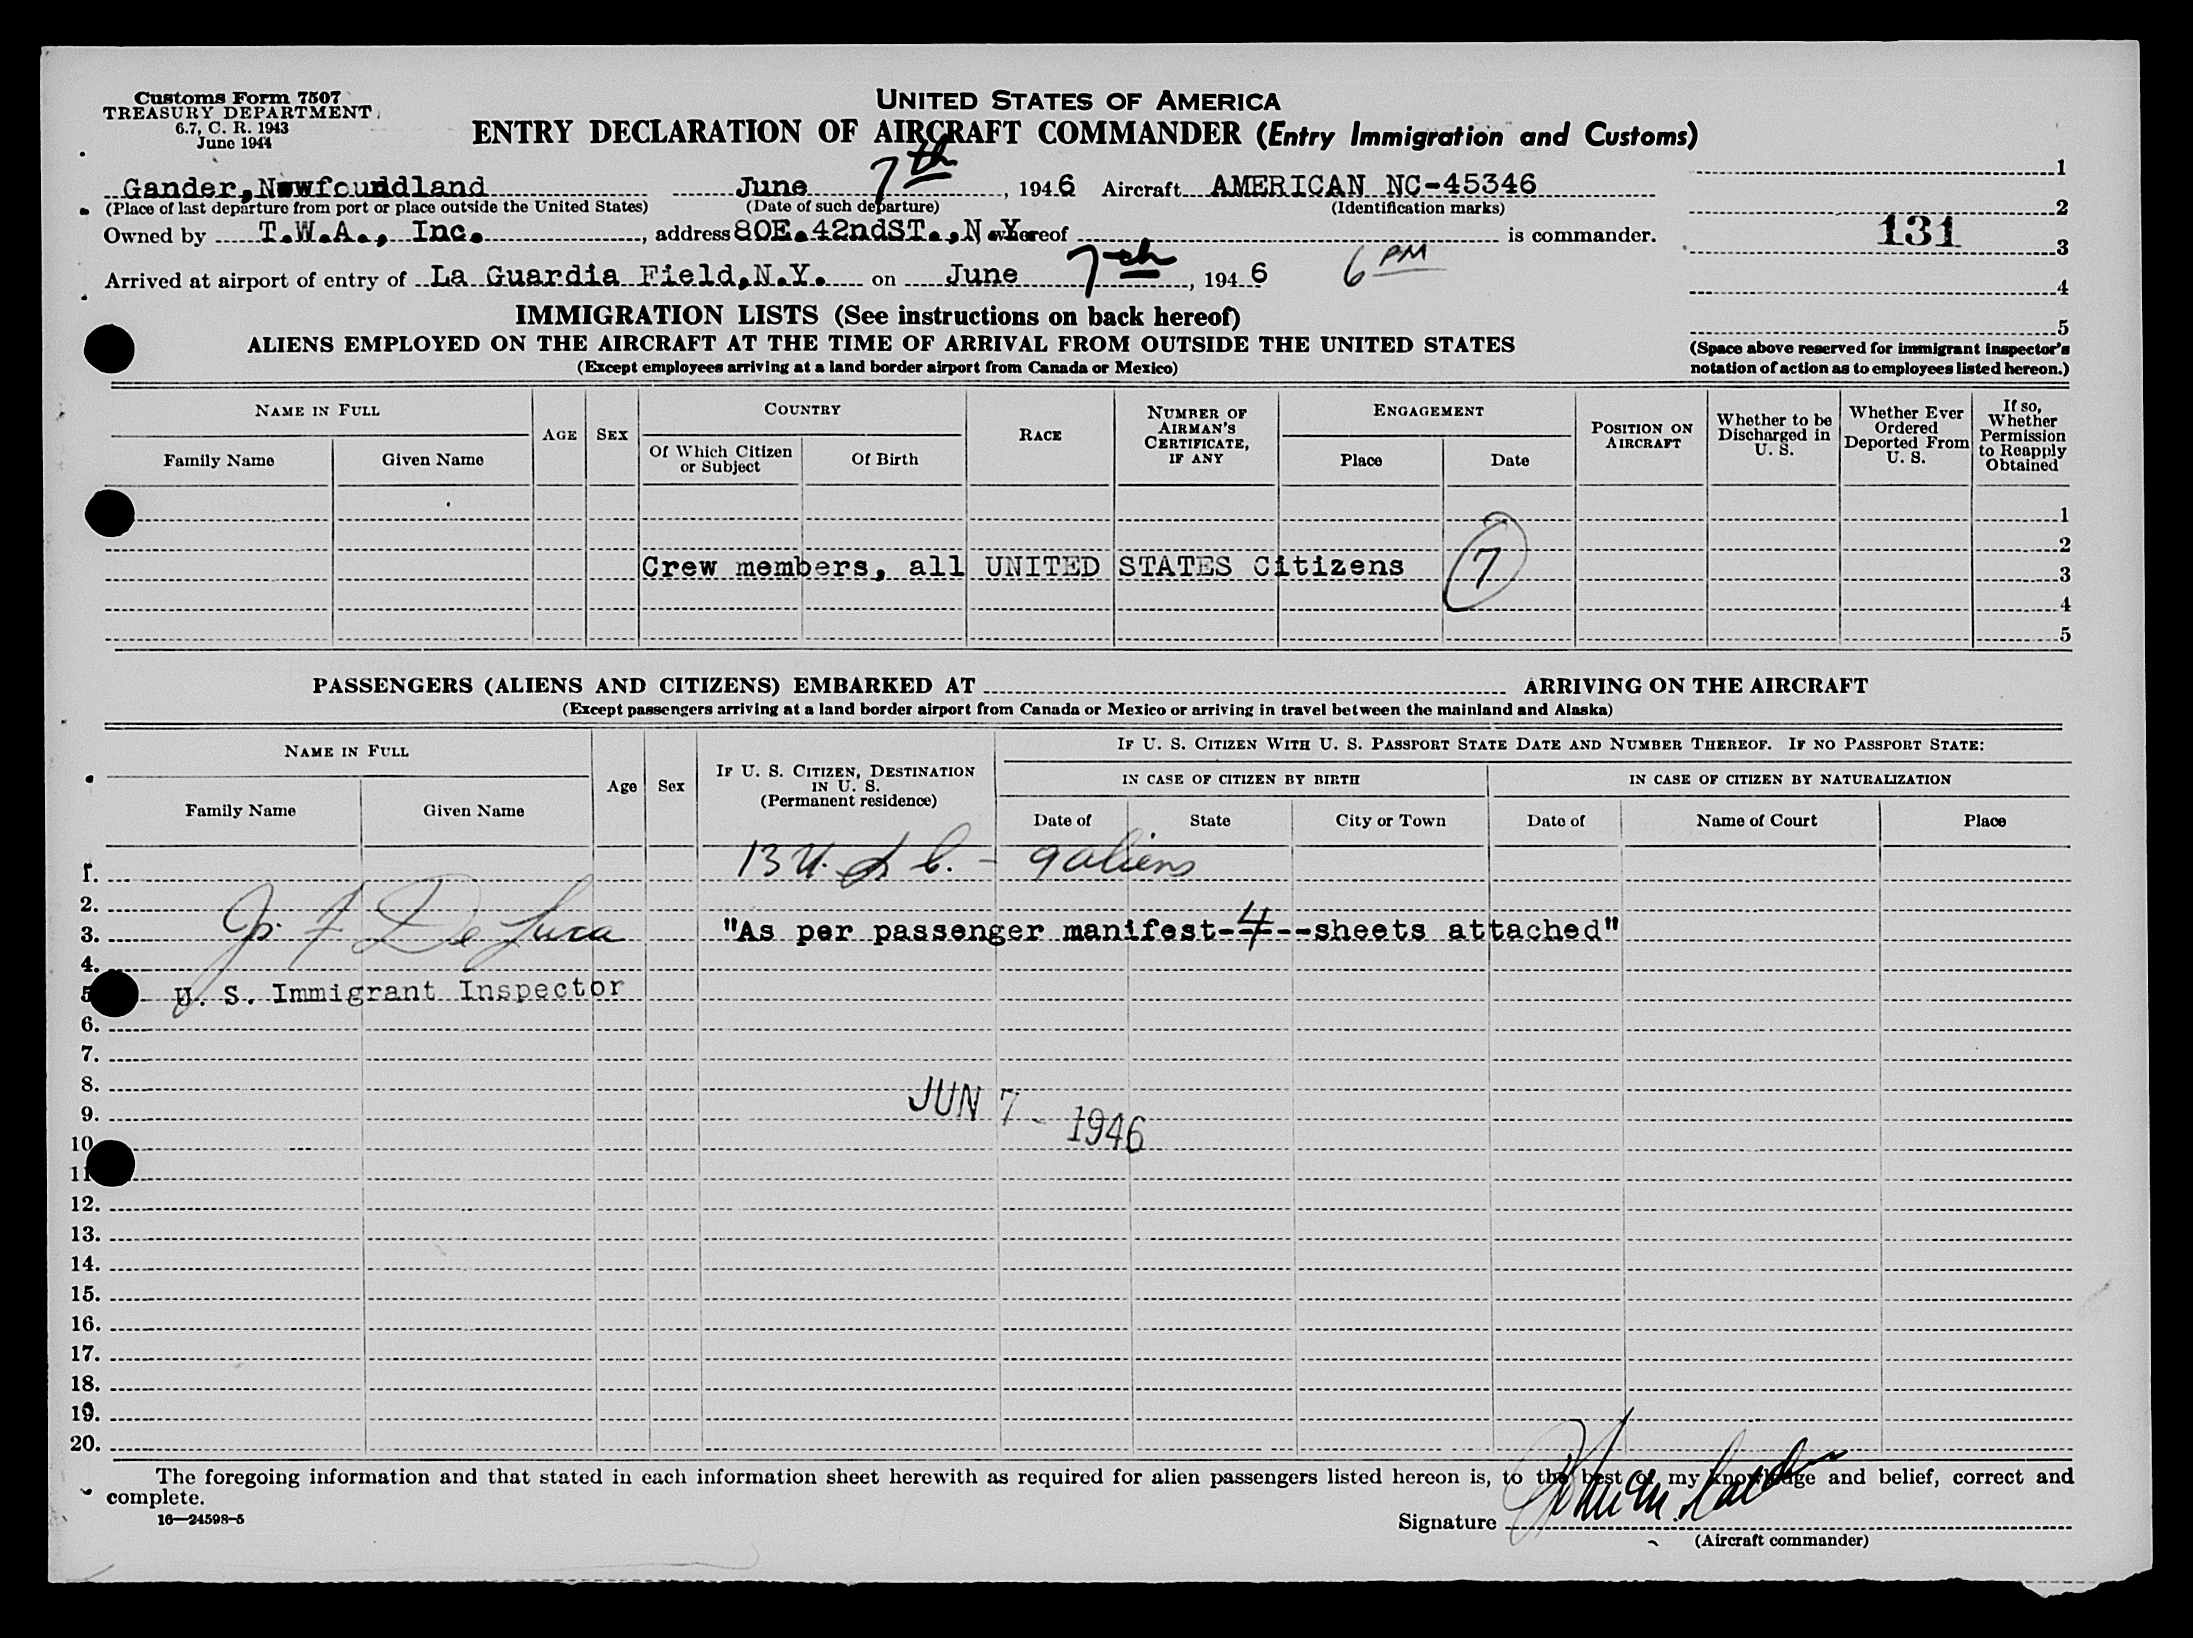 Customs Form 7507
TREASURY DEPARTMENT
6.7, C. R. 1943
June 1944
UNITED STATES OF AMERICA
ENTRY DECLARATION OF AIRCRAFT COMMANDER (Entry Immigration and Customs)
Gander, Newfoundland June 7th, 1946 Aircraft AMERICAN NC-45346
(Place of last departure from port or place outside the United States) (Date of such departure) (Identification marks)
Owned by T.W.A., Inc., address 80E.42ndST.,N.Y. whereof is commander.
Arrived at airport of entry of La Guardia Field,N.Y. on June 7th, 1946 6 PM
1
2
131
3
4
5
(Space above reserved for immigrant inspector's
notation of action as to employees listed hereon.)
IMMIGRATION LISTS (See instructions on back hereof)
ALIENS EMPLOYED ON THE AIRCRAFT AT THE TIME OF ARRIVAL FROM OUTSIDE THE UNITED STATES
(Except employees arriving at a land border airport from Canada or Mexico)
NAME IN FULL
Family Name Given Name
AGE SEX
COUNTRY
Of Which Citizen or Subject
Of Birth
RACE
NUMBER OF AIRMAN'S CERTIFICATE, IF ANY
ENGAGEMENT
Place Date
POSITION ON AIRCRAFT
Whether to be Discharged in U. S.
Whether Ever Ordered Deported From U. S.
If so, Whether Permission to Reapply Obtained
1
2
Crew members, all UNITED STATES Citizens 7
3
4
5
PASSENGERS (ALIENS AND CITIZENS) EMBARKED AT ARRIVING ON THE AIRCRAFT
(Except passengers arriving at a land border airport from Canada or Mexico or arriving in travel between the mainland and Alaska)
NAME IN FULL
Family Name Given Name
Age Sex
IF U. S. CITIZEN, DESTINATION IN U. S.
(Permanent residence)
IF U. S. CITIZEN WITH U. S. PASSPORT STATE DATE AND NUMBER THEREOF. IF NO PASSPORT STATE:
IN CASE OF CITIZEN BY BIRTH IN CASE OF CITIZEN BY NATURALIZATION
Date of State City or Town Date of Name of Court Place
1. 13 U.S.C. - 9 aliens
2.
3. J. F. De Luca "As per passenger manifest-4--sheets attached"
4.
5. U. S. Immigrant Inspector
6.
7.
8.
JUN 7 - 1946
9.
10
11
12.
13.
14.
15.
16.
17.
18.
19.
20.
The foregoing information and that stated in each information sheet herewith as required for alien passengers listed hereon is, to the best of my knowledge and belief, correct and
complete.
16—24598-5
Signature
(Aircraft commander)